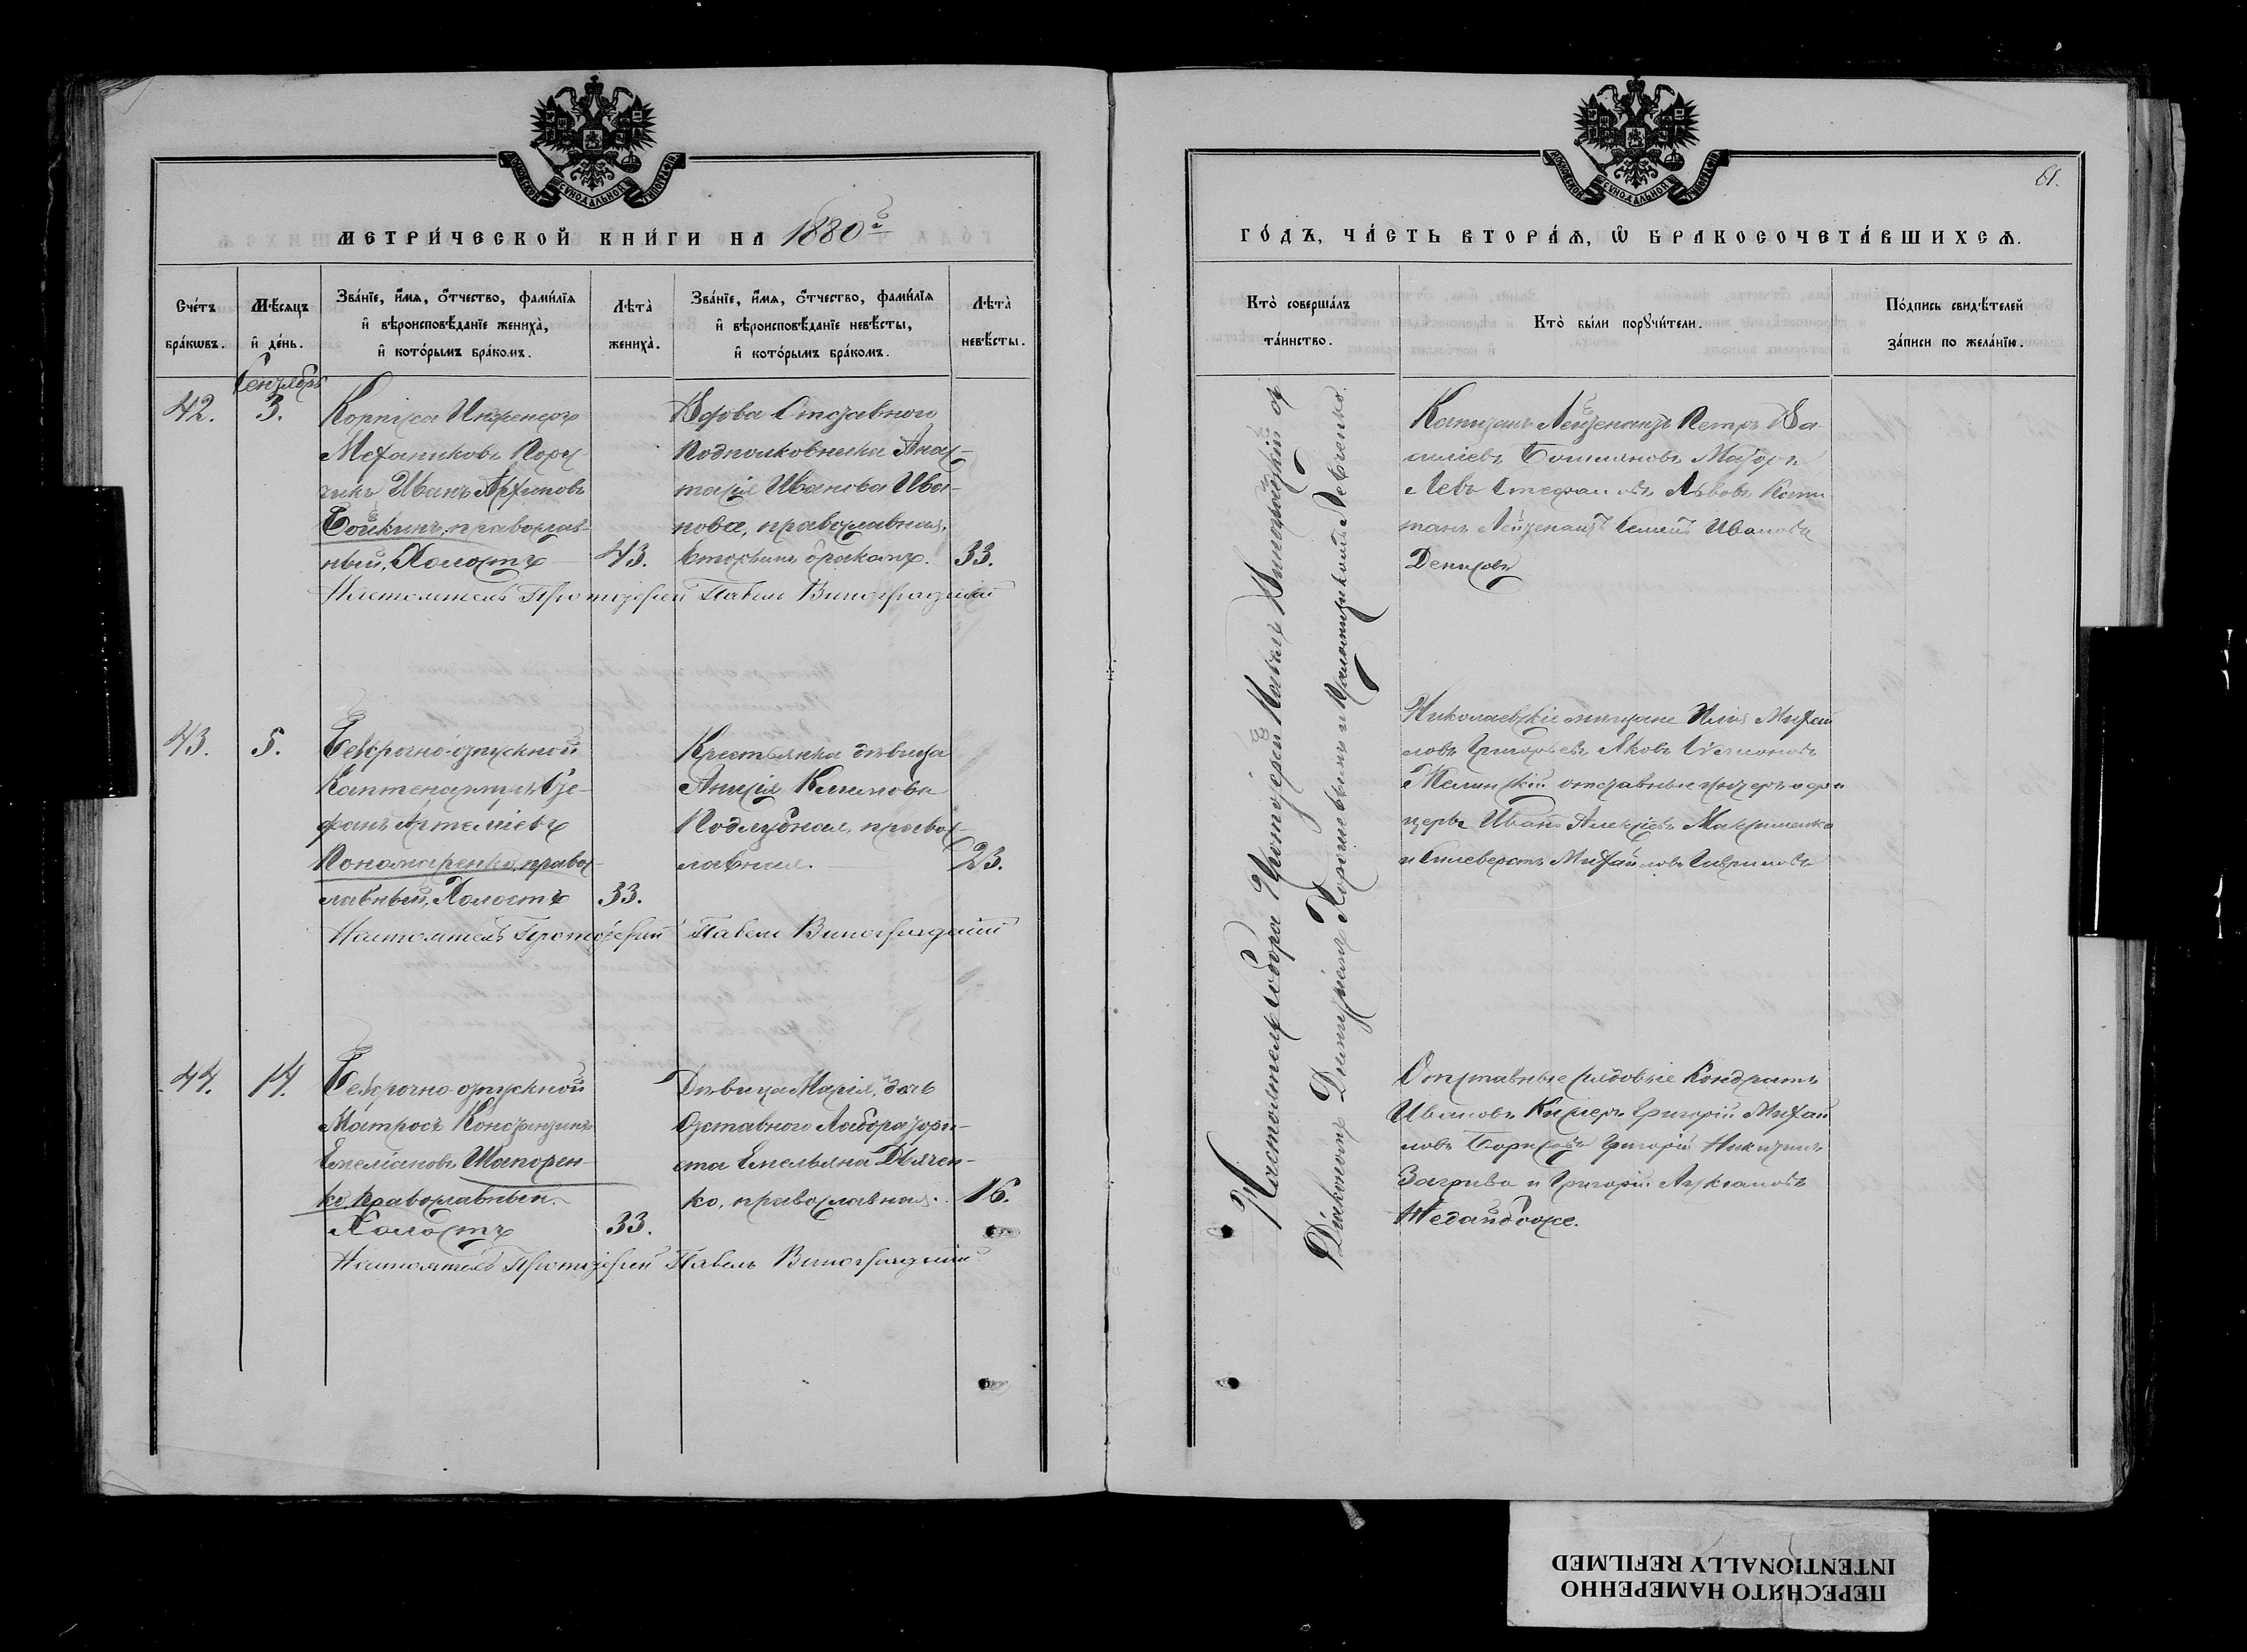 МОСКОВСКОЙ СѴНОДАЛЬНОЙ ТИПОГРАФІИ
МЕТРИ́ЧЕСКОЙ КНИ́ГИ НА 1880й
Сче́тъ бра́кωвъ.
Мѣ́сяцъ и҆ де́нь.
Зва́нїе, и҆́мѧ, ѻ҆́тчество, фами́лїѧ
и҆ вѣроисповѣ́данїе жениха̀,
и҆ кото́рымъ бра́комъ.
Лѣта̀ жениха̀.
Зва́нїе, и҆́мѧ, ѻ҆́тчество, фами́лїѧ
и҆ вѣроисповѣ́данїе невѣ́сты,
и҆ кото́рымъ бра́комъ.
Лѣта̀ невѣ́сты.
Сентябрь
42.
3.
Корпуса Инженеръ
Механиковъ Пору-
чикъ Иванъ Архиповъ
Бойкинъ, православ-
ный, Холостъ
43.
Вдова Отставного
Подполковника Анас-
тасія Иванова Ива-
нова, православная,
вторымъ бракомъ.
33.
Настоятель Протоіерей Павелъ Виноградскій
43.
5.
Безсрочно-отпускной
Каптенармусъ Сте-
фанъ Артеміевъ
Пономаренко, правос-
лавный, Холостъ
33.
Крестьянка дѣвица
Анисія Климова
Поддубная, правос-
лавная.
23.
Настоятель Протоіерей Павелъ Виноградскій
44.
14.
Безсрочно-отпускной
Матросъ Константинъ
Емеліановъ Шапорен-
ко, Православный.
Холостъ
33.
Дѣвица Марія, дочь
Отставного Лаборатори-
ста Емельяна Дьячен-
ко, православная.
16.
Настоятель Протоіерей Павелъ Виноградскій
МОСКОВСКОЙ СѴНОДАЛЬНОЙ ТИПОГРАФІИ
61.
ГО́ДЪ, ЧА́СТЬ ВТОРА́Ѧ, Ѡ҆ БРАКОСОЧЕТА́ВШИХСѦ.
Кто̀ соверша́лъ
та́инство.
Кто̀ бы́ли порꙋчи́тели.
По́дпись свидѣ́телей
за́писи по жела́нїю.
Настоятель Собора Протоіерей Павелъ Виноградскій съ
Діакономъ Димитріемъ Хорошевымъ и Левченко.
Капитанъ Лейтенантъ Петръ Ва-
Маіоръ
Левъ Стефановъ Львовъ Капи
танъ Лейтенантъ Иванов
Денисовъ
Николаевскіе мѣщане Илія Михай
ловъ Григорьевъ Яковъ
отставные унтеръ офи
церы Иванъ Алексѣевъ Максименко
и Михайловъ Гавриловъ
Отставные рядовые Кондратъ
Ивановъ Григорій Михай
ловъ Борисовъ Григорій Никитинъ
Загрива и Григорій
Недайбоже.
ПЕРЕСНЯТО НАМЕРЕННО
INTENTIONALLY REFILMED